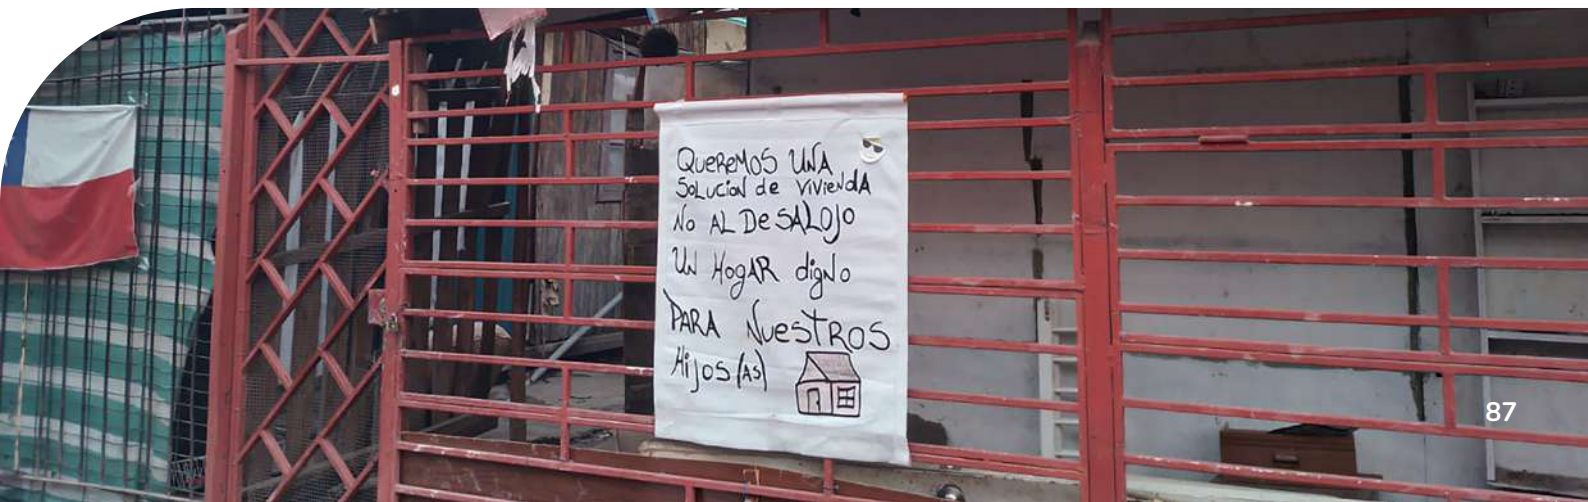 QUEREMOS UNA
SOLUCION de VIVIENdA
NO AL DeSALOJO
UN HOgAR digNo
PARA NuESTROS
HiJOS(AS)
87